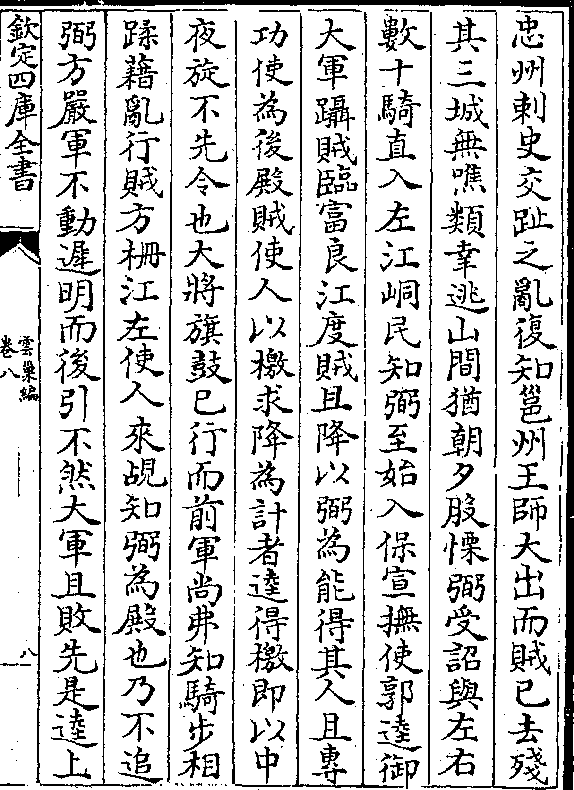 忠州刺史交趾之亂復知邕州王師大出而賊已去殘
其三城無噍類幸逃山間猶朝夕股慄弼受詔與左右
數十騎直入左江峒民知弼至始入保宣撫使郭逵御
大軍躡賊臨富良江度賊且降以弼為能得其人且專
功使為後殿賊使人以檄求降為計者逵得檄即以中
夜旋不先令也大將旗鼓已行而前軍尚弗知騎步相
蹂藉亂行賊方柵江左使人來覘知弼為殿也乃不追
弼方嚴軍不動遲明而後引不然大軍且敗先是逵上
欽定四庫全書
雲巢編
卷八
八